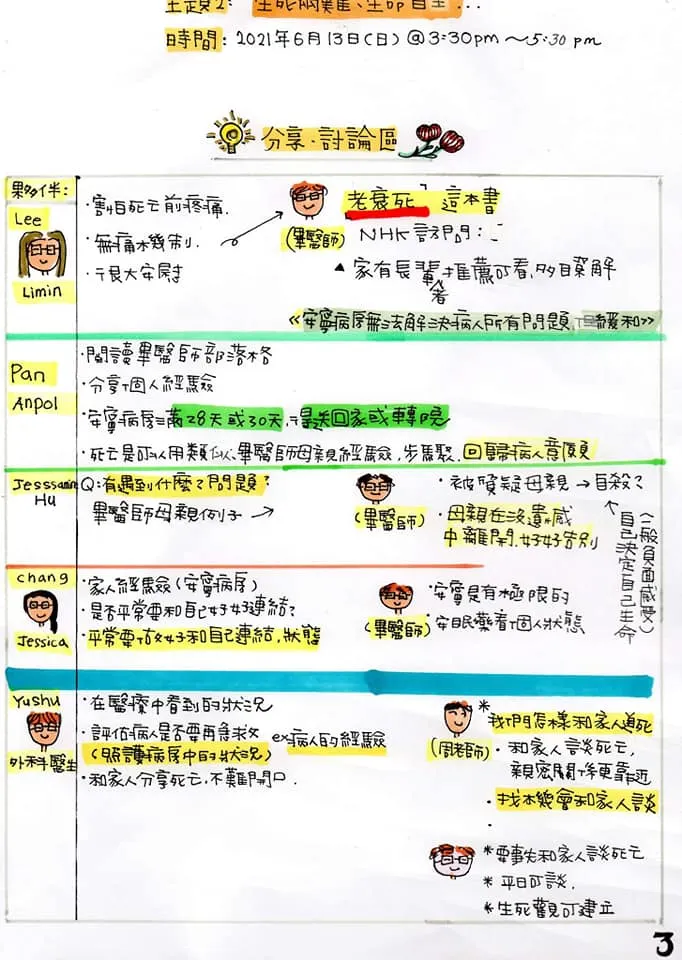 主題2: 生死兩難、生命自主...
時間: 2021年6月13日(日) @3:30pm ~5:30 pm
分享·討論區
夥伴:
Lee
Limin
·害怕死亡前疼痛.
·無痛機制.
·很大安慰
(畢醫師)
老衰死" 這本書
NHK 訪問:
▲ 家有長輩者推薦可看,多瞭解
《安寧病房無法解決病人所有問題,但緩和》
Pan
Anpol
·閱讀畢醫師部落格
·分享個人經驗
·安寧病房滿28天或30天,得送回家或轉院
·死亡是可以用類似畢醫師母親經驗,步驟,回歸病人意願
Jesssamin
Hu
Q:有遇到什麼?問題?
畢醫師母親例子 →
(畢醫師)
·被質疑母親 → 自殺?
·母親在沒遺憾
中離開,好好告別
自己決定自己生命
(一般負面感受)
chang
Jessica
·家人經驗(安寧病房)
·是否平常要和自己好好連結?
·平常要好好和自己連結,狀態
(畢醫師)
·安寧是有極限的
·安眠藥看個人狀態
Yushu
外科醫生
·在醫療中看到的狀況
·評估病人是否要再急救 ex病人的經驗
(照護病房中的狀況)
·和家人分享死亡,不難開口.
(周老師)
*我們怎樣和家人道死
·和家人談死亡,
親密關係更靠近
·找機會和家人談
*要事先和家人談死亡
*平日可談.
*生死觀可建立
3